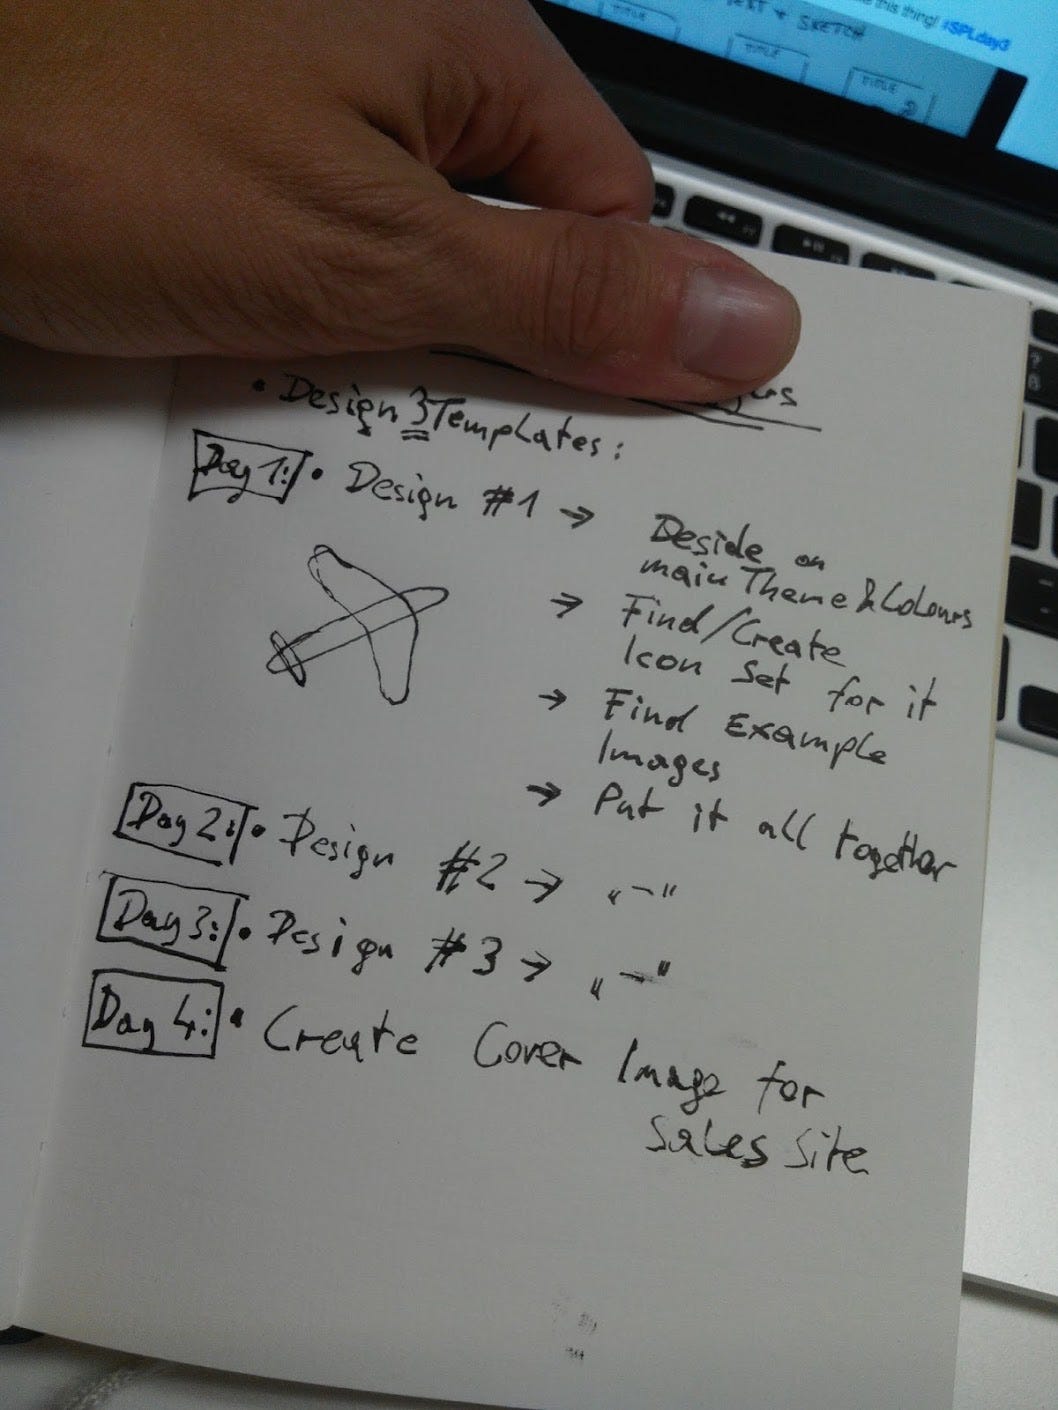 TITLE
TEXT + SKETCH
this thing! #SPLday3
TITLE
TITLE
• Design 3 Templates:
Day 1: • Design #1 → Deside on
main Theme & Colours
→ Find/Create
Icon Set for it
→ Find Example
Images
→ Put it all together
Day 2: • Design #2 → „—"
Day 3: • Design #3 → „—"
Day 4: • Create Cover Image for
Sales Site